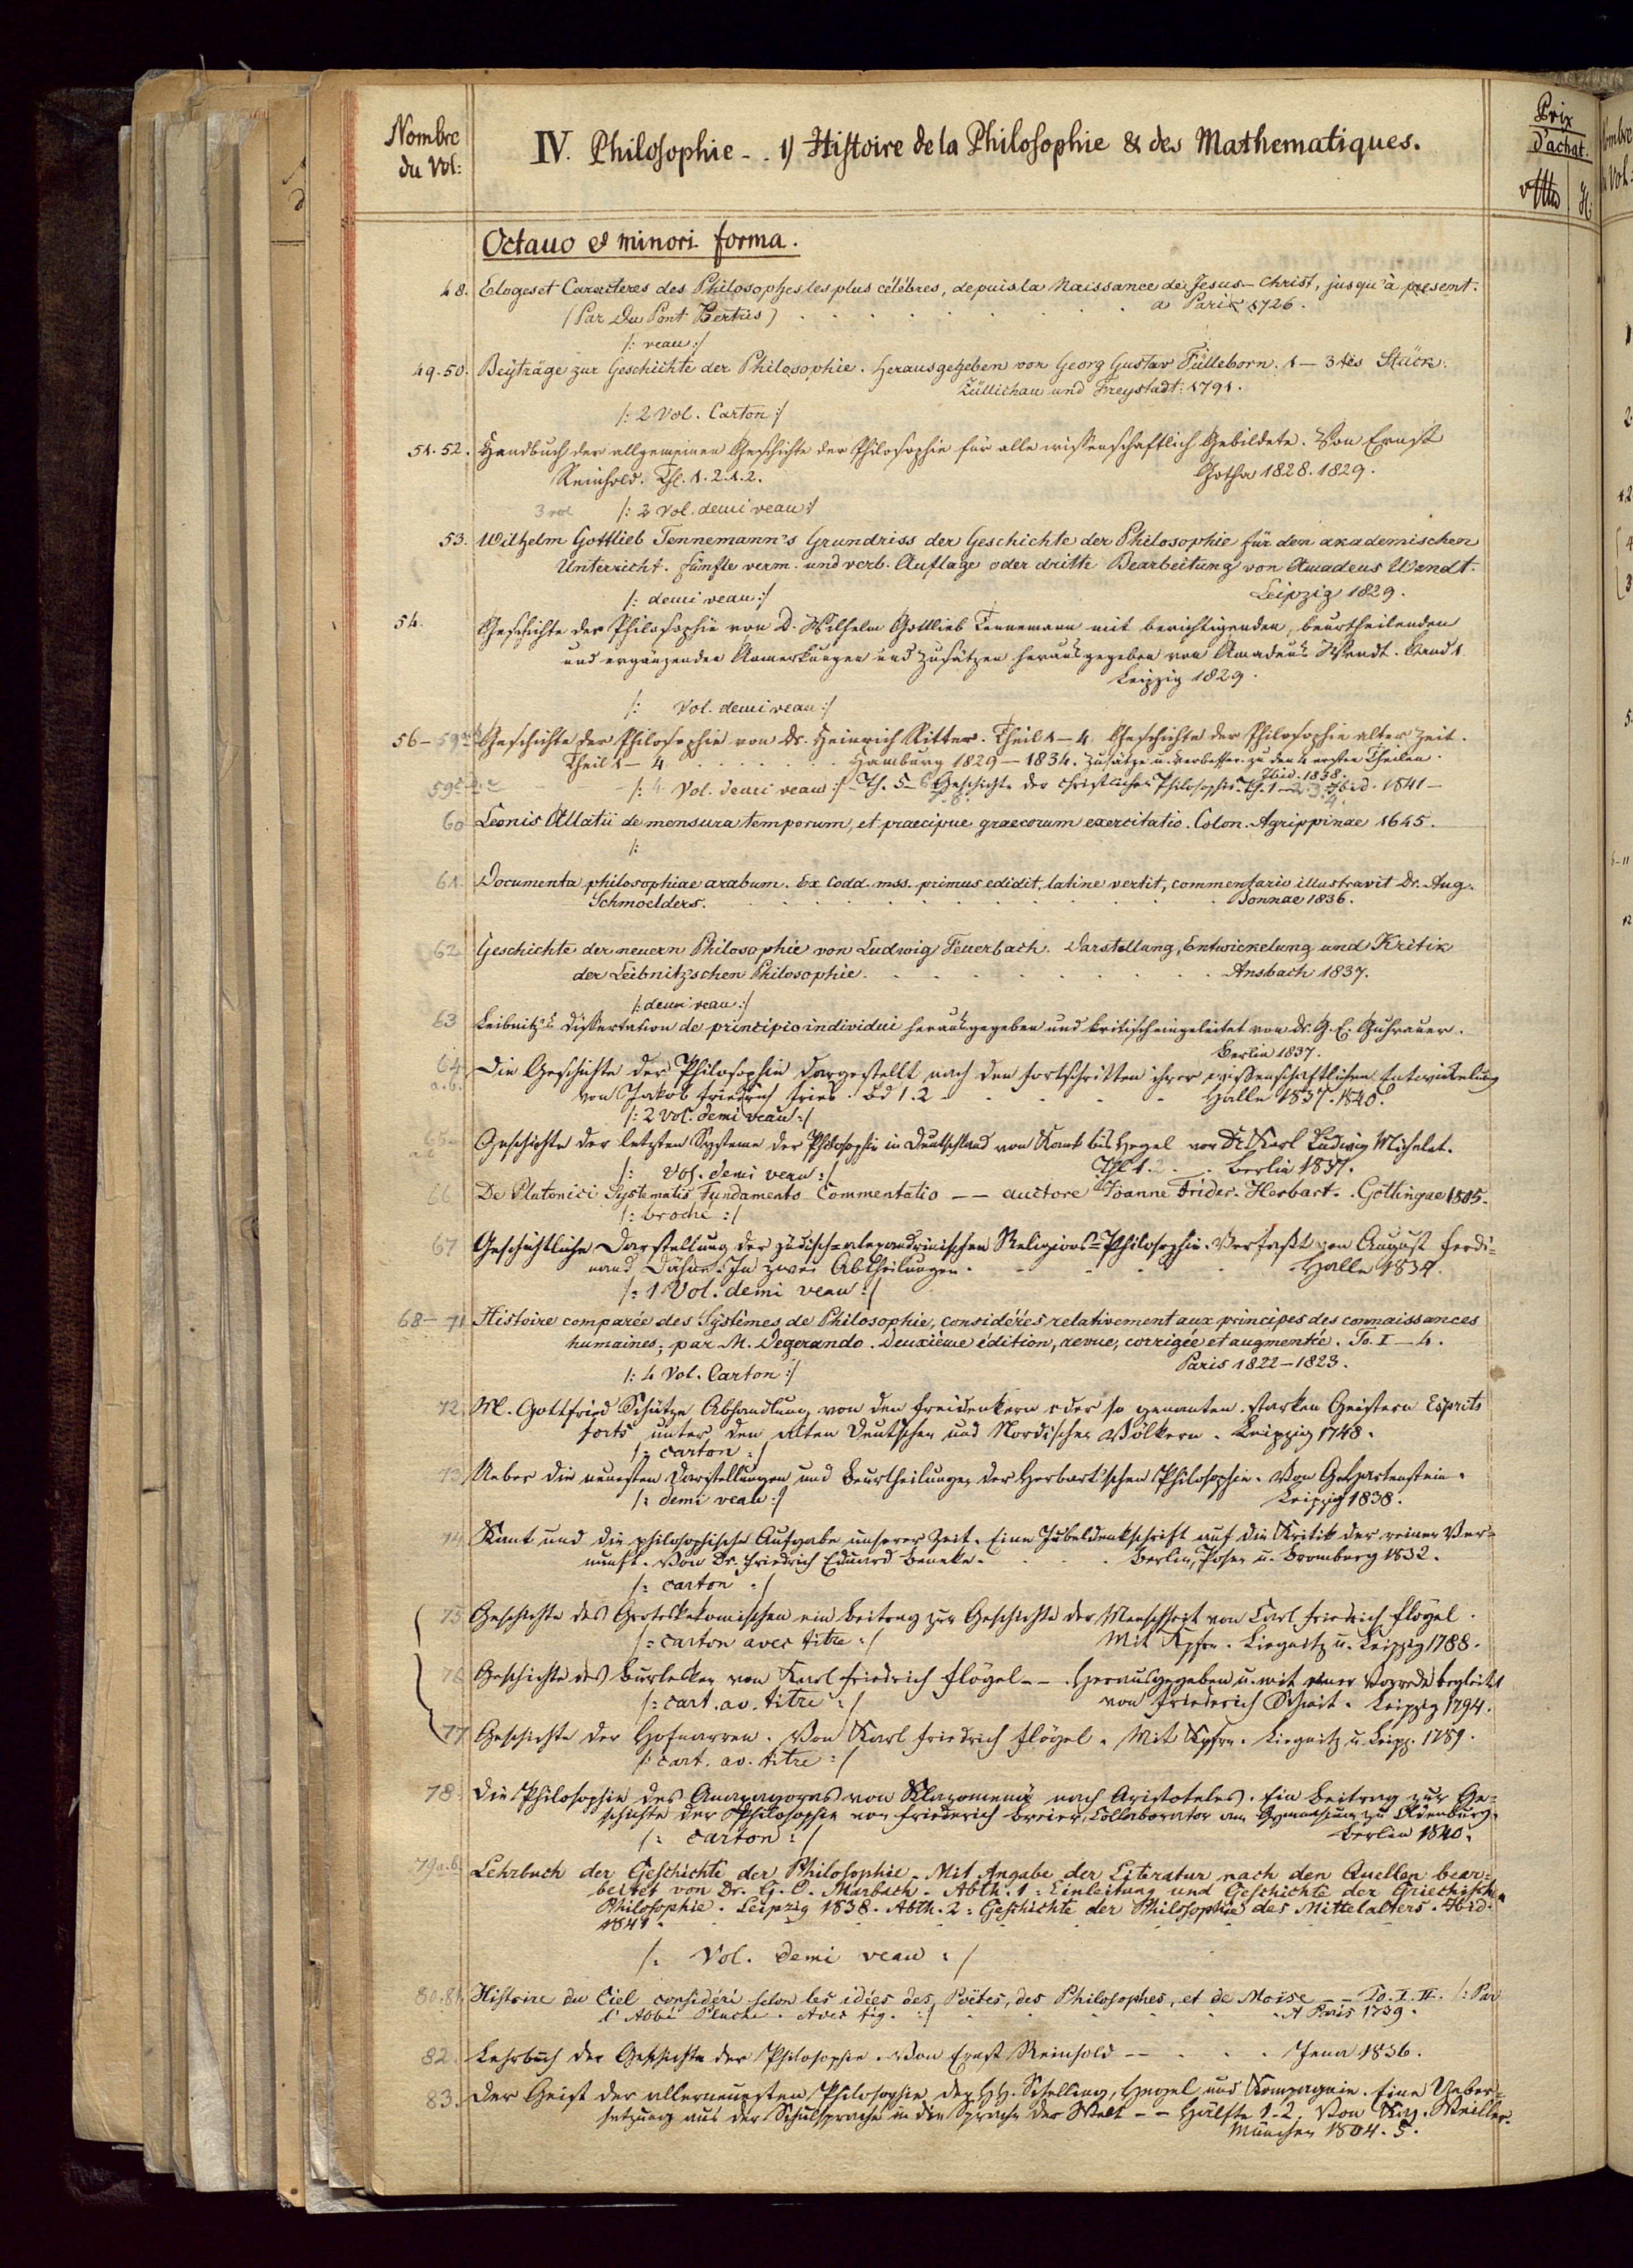 Nombre du Vol:
IV. Philosophie - . 1) Histoire de la Philosophie & des Mathematiques.
Prix d'achat.
Octavo et minori forma.
48. Eloges et Caracteres des Philosophes les plus célébres, depuis la Naissance de Jesus-Christ, jusqu'à present.
(Par Du Pont Bertris) . . . . a Paris 1726.
/: veau :/
49.50. Beyträge zur Geschichte der Philosophie. Herausgegeben von Georg Gustav Fülleborn. 1 - 3tes Stück.
Züllichau und Freystadt: 1791.
/: 2 Vol. Carton :/
51.52. Handbuch der allgemeinen Geschichte der Philosophie für alle wissenschaftlich Gebildete. Von Ernst
Reinhold. Thl. 1.2.1.2. Gotha 1828.1829.
3 vol /: 2 Vol. demi veau :/
53. Wilhelm Gottlieb Tennemann's Grundriss der Geschichte der Philosophie für den akademischen
Unterricht. Fünfte verm. und verb. Auflage oder dritte Bearbeitung von Amadeus Wendt.
/: demi veau :/ Leipzig 1829.
54. Geschichte der Philosophie von D. Wilhelm Gottlieb Tennemann mit berichtigenden, beurtheilenden
und ergänzenden Anmerkungen und Zusätzen herausgegeben von Amadeus Wendt. Band 1
Leipzig 1829.
/: Vol. demi veau :/
56-59 Geschichte der Philosophie von Dr. Heinrich Ritter. Theil 1-4. Geschichte der Philosophie alter Zeit.
Theil 1-4 . . . . Hamburg 1829-1834. Zusätze u. Verbesser. zu den 4 ersten Theilen.
Ibid. 1838.
/: 4 Vol. demi veau :/ - Th. 5-6 Geschichte der christlichen Philosophie. Th. 1-2. 3. Ibid. 1841-
60 Leonis Allatii de mensura temporum, et praecipue graecorum exercitatio. Colon. Agrippinae 1645.
/:
61. Documenta philosophiae arabum. Ex Codd. mss. primus edidit, latine vertit, commentario illustravit Dr. Aug.
Schmoelders. . . . . Bonnae 1836.
62 Geschichte der neuern Philosophie von Ludwig Feuerbach. Darstellung, Entwickelung und Kritik
der Leibnitz'schen Philosophie. . . . . Ansbach 1837.
/: demi veau :/
63 Leibnitz's Dissertation de principio individui herausgegeben und kritisch eingeleitet von Dr. G. E. Guhrauer.
Berlin 1837.
64 a.b. Die Geschichte der Philosophie dargestellt nach den Fortschritten ihrer wissenschaftlichen Entwickelung
von Jakob Friedrich Fries. Bd 1.2 . . . . Halle 1837. 1840.
/: 2 Vol. demi veau :/
65 a.b Geschichte der letzten Systeme der Philosophie in Deutschland von Kant bis Hegel von Dr Karl Ludwig Michelet.
/: Vol. demi veau :/ Thl 1.2. . . Berlin 1837.
66 De Platonici Systematis Fundamento Commentatio -- auctore Joanne Frider. Herbart. Göttingae 1805.
/: broché :/
67 Geschichtliche Darstellung der jüdisch-alexandrinischen Religions-Philosophie. Verfaßt von August Ferdi-
nand Dähne. In zwei Abtheilungen. . . . Halle 1834.
/: 1 Vol. demi veau :/
68-71 Histoire comparée des Systêmes de Philosophie, considérés relativement aux principes des connaissances
humaines; par M. Degerando. Deuxième édition, revue, corrigée et augmentée. To. I-4.
/: 4 Vol. Carton :/ Paris 1822-1823.
72. M. Gottfried Schütze Abhandlung von den Freidenkern oder so genanten starken Geistern Esprits
forts unter den alten Deutschen und Nordischen Völkern. Leipzig 1748.
/: carton :/
73. Ueber die neuesten Darstellungen und Beurtheilungen der Herbart'schen Philosophie. Von G. Hartenstein.
/: demi veau :/ Leipzig 1838.
74. Kant und die philosophische Aufgabe unserer Zeit. Eine Jubeldenkschrift auf die Kritik der reinen Ver-
nunft. Von Dr. Friedrich Eduard Beneke. . . . Berlin, Posen u. Bromberg 1832.
/: carton :/
75 Geschichte des Groteskekomischen ein Beitrag zur Geschichte der Menschheit von Carl Friedrich Flögel.
/: carton avec titre :/ Mit Kpfrn. Liegnitz u. Leipzig 1788.
76 Geschichte des Burlesken von Karl Friedrich Flögel -- Herausgegeben u. mit einer Vorrede begleitet
/: cart. av. titre :/ von Friederich Schmit. Leipzig 1794.
77 Geschichte der Hofnarren. Von Karl Friedrich Flögel. Mit Kpfrn. Liegnitz u. Leipz. 1789.
/: cart. av. titre :/
78. Die Philosophie des Anaxagoras von Klazomenä nach Aristoteles. Ein Beitrag zur Ge-
schichte der Philosophie von Friederich Breier, Collaborator am Gymnasium zu Oldenburg.
/: carton :/ Berlin 1840.
79 a.b. Lehrbuch der Geschichte der Philosophie. Mit Angabe der Literatur nach den Quellen bear-
beitet von Dr. G. O. Marbach. Abth. 1: Einleitung und Geschichte der Griechischen
Philosophie. Leipzig 1838. Abth. 2: Geschichte der Philosophie des Mittelalters. Ibid.
1841.
/: Vol. demi veau :/
80.81. Histoire du Ciel consideré selon les idées des Poëtes, des Philosophes, et de Moise -- To. I. II. /: Par
l'Abbé Pluche. Avec fig. :/ . . . A Paris 1739.
82. Lehrbuch der Geschichte der Philosophie. Von Ernst Reinhold -- . . . Jena 1836.
83. Der Geist der allerneuesten Philosophie der HH. Schelling, Hegel und Kompagnie. Eine Ueber-
setzung aus der Schulsprache in die Sprache der Welt -- Hälfte 1-2. Von Kaj. Weiller.
München 1804. 5.